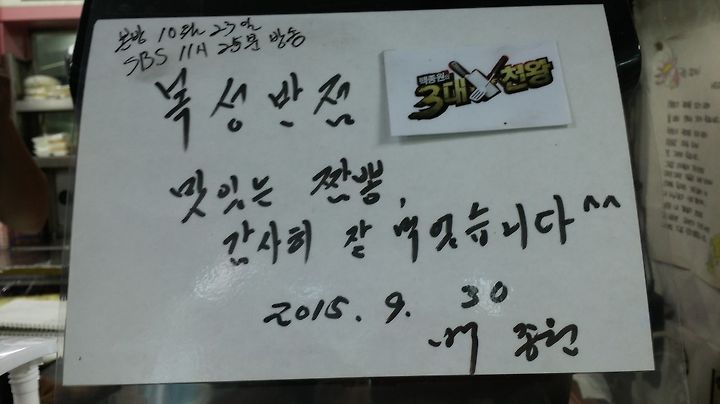 본방 10월 23일
SBS 11시 25분 방송
백종원의
3대천왕
복성반점
맛있는 짬뽕,
감사히 잘 먹었습니다^^
2015. 9. 30
백종원